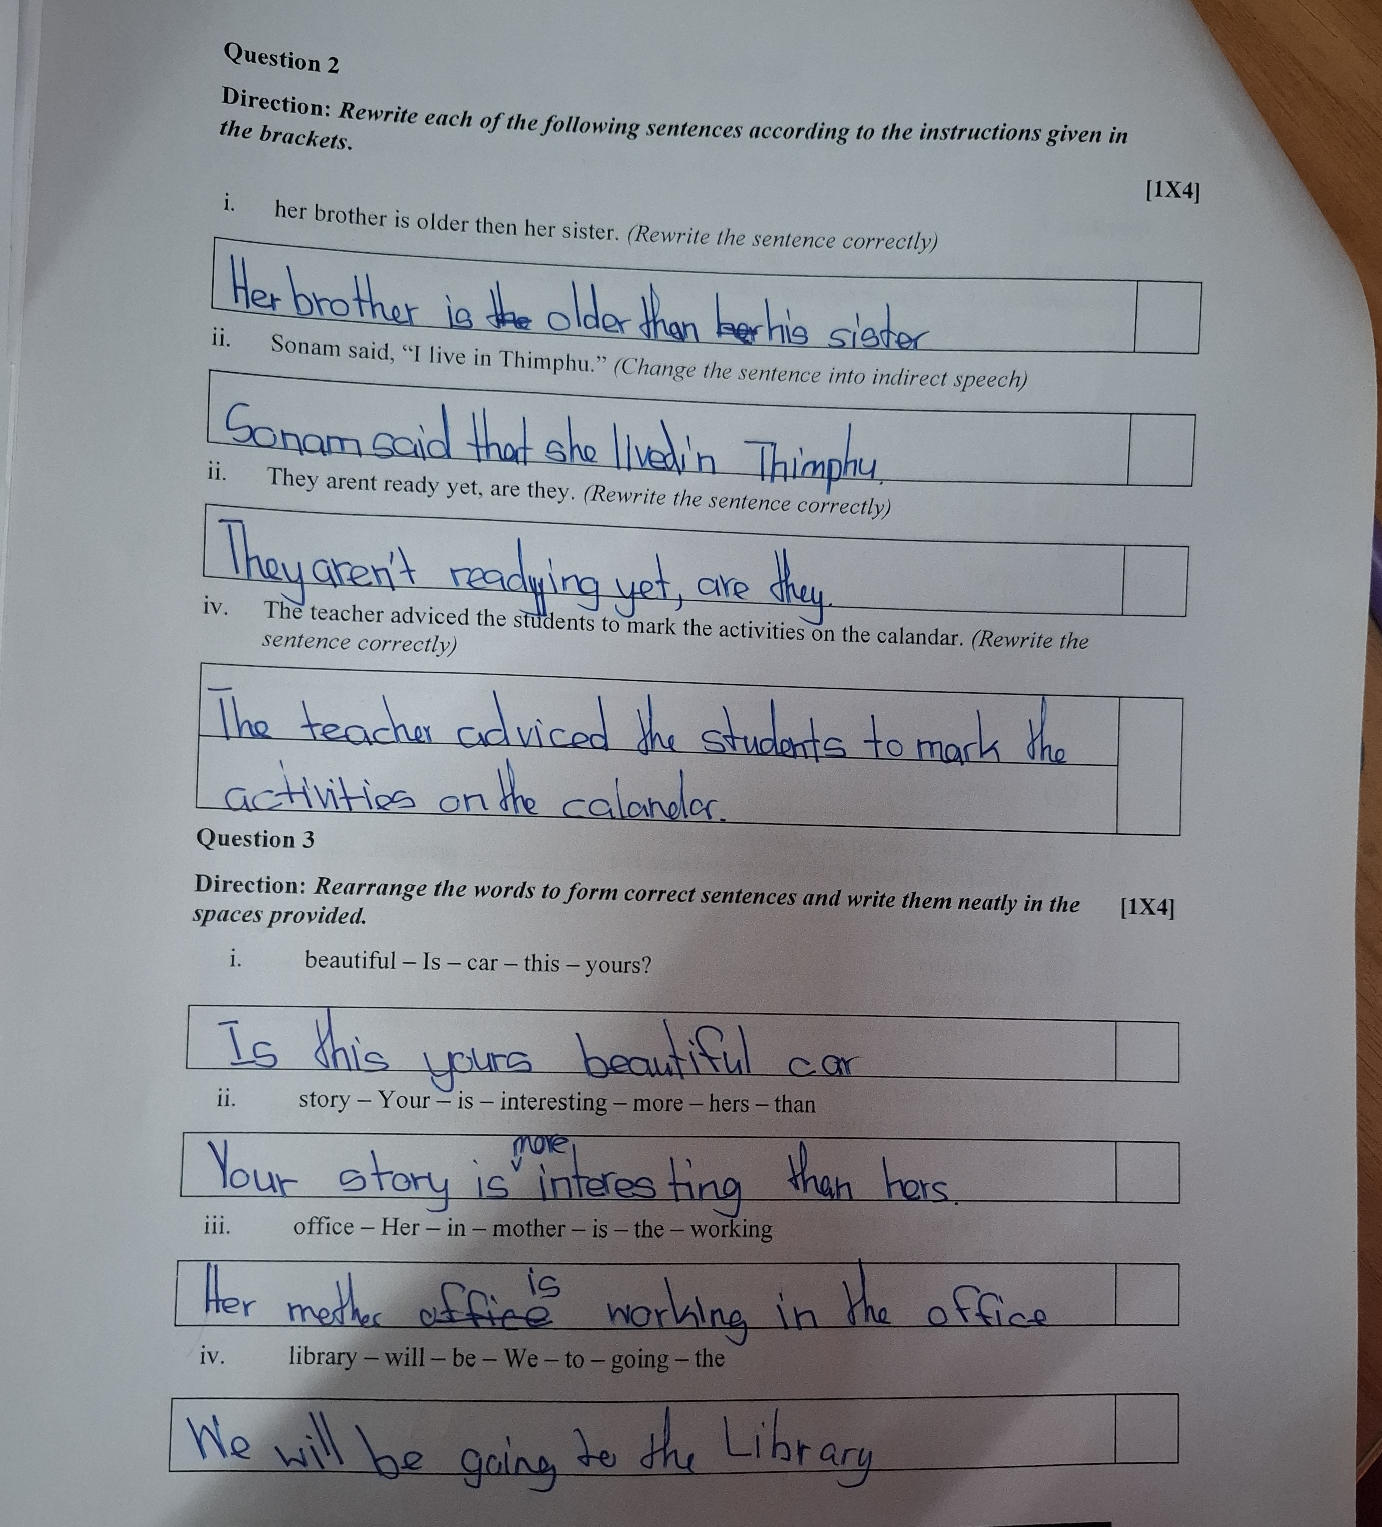 Question 2
Direction: Rewrite each of the following sentences according to the instructions given in
the brackets.
[1X4]
i. her brother is older then her sister. (Rewrite the sentence correctly)
Her brother is the older than her his sister
ii. Sonam said, “I live in Thimphu.” (Change the sentence into indirect speech)
Sonam said that she lived in Thimphu.
ii. They arent ready yet, are they. (Rewrite the sentence correctly)
They aren't readying yet, are they.
iv. The teacher adviced the students to mark the activities on the calandar. (Rewrite the
sentence correctly)
The teacher adviced the students to mark the
activities on the calandar.
Question 3
Direction: Rearrange the words to form correct sentences and write them neatly in the [1X4]
spaces provided.
i. beautiful – Is – car – this – yours?
Is this yours beautiful car
ii. story – Your – is – interesting – more – hers – than
more
Your story is interesting than hers.
iii. office – Her – in – mother – is – the – working
is
Her mother office working in the office
iv. library – will – be – We – to – going – the
We will be going to the Library